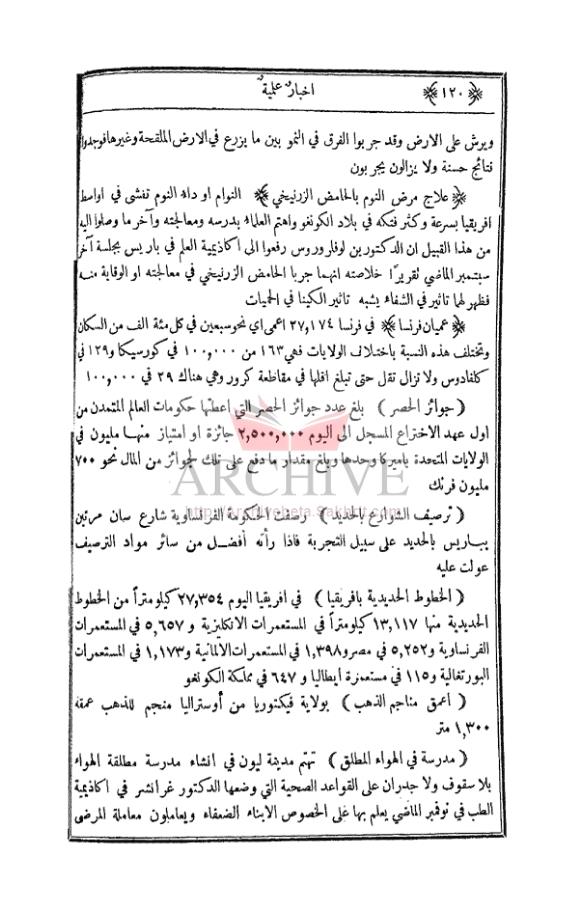 ﴿١٢٠﴾ اخبار علمية
ويرش على الارض وقد جربوا الفرق في النمو بين ما يزرع في الارض الملقحة وغيرها فوجدوا
نتائج حسنة ولا يزالون يجربون
﴿علاج مرض النوم بالحامض الزرنيخي﴾ النوام او داء النوم تفشى في اواسط
افريقيا بسرعة وكثر فتكه في بلاد الكونغو واهتم العلماء بدرسه ومعالجته وآخر ما وصلوا اليه
من هذا القبيل ان الدكتورين لوفار وروس رفعوا الى اكاذيمية العلم في باريس بجلسة آخر
سبتمبر الماضي تقريرًا خلاصته انهما جربا الحامض الزرنيخي في معالجته او الوقاية منه
فظهر لها تاثير في الشفاء يشبه تاثير الكينا في الحميات
﴿عميان فرنسا﴾ في فرنسا ٢٧,١٧٤ اعمى اي نحو سبعين في كل مئة الف من السكان
وتختلف هذه النسبة باختلاف الولايات فهي ١٦٣ من ١٠٠,٠٠٠ في كورسيكا و١٢٩ في
كلفادوس ولا تزال تقل حتى تبلغ اقلها في مقاطعة كرور وهي هناك ٢٩ في ١٠٠,٠٠٠
( جوائز الحصر ) بلغ عدد جوائز الحصر التي اعطتها حكومات العالم المتمدن من
اول عهد الاختراع المسجل الى اليوم ٢,٥٠٠,٠٠٠ جائزة او امتياز منها مليون في
الولايات المتحدة باميركا وحدها وبلغ مقدار ما دفع على تلك الجوائز من المال نحو ٧٠٠
مليون فرنك
ARCHIVE
http://archivebeta.Sakhrit.com
( ترصيف الشوارع بالحديد ) رصفت الحكومة الفرانساوية شارع سان مرتين
بباريس بالحديد على سبيل التجربة فاذا رأته أفضل من سائر مواد الترصيف
عولت عليه
( الخطوط الحديدية بافريقيا ) في افريقيا اليوم ٢٧,٣٥٤ كيلومتراً من الخطوط
الحديدية منها ١٣,١١٧ كيلومتراً في المستعمرات الانكليزية و ٥,٦٥٧ في المستعمرات
الفرنساوية و٥,٢٥٢ في مصر و١,٣٩٨ في المستعمرات الالمانية و ١,١٧٣ في المستعمرات
البورتغالية و١١٥ في مستعمرة ايطاليا و ٦٤٧ في مملكة الكونغو
( اعمق مناجم الذهب ) بولاية فيكتوريا من أوستراليا منجم للذهب عمقه
١,٣٠٠ متر
( مدرسة في الهواء المطلق ) تهتم مدينة ليون في انشاء مدرسة مطلقة الهواء
بلا سقوف ولا جدران على القواعد الصحية التي وضعها الدكتور غرانشر في اكاذيمية
الطب في نوفمبر الماضي يعلم بها على الخصوص الابناء الضعفاء ويعاملون معاملة المرضى